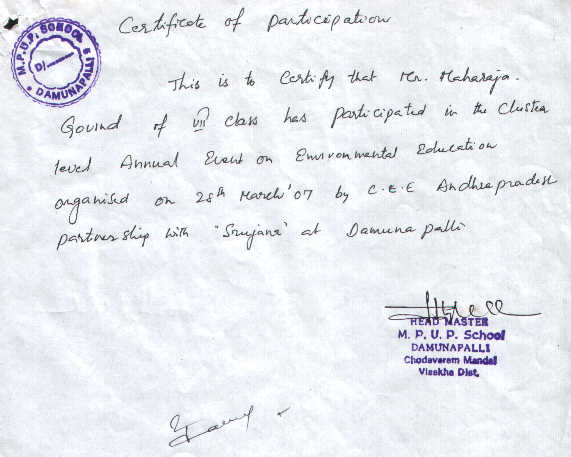 Certificate of participation
M.P.U.P. SCHOOL
D/
DAMUNAPALLI
This is to Certify that Mr. Maharaja.
Govind of VII class has participated in the Cluster
level Annual Event on Environmental Education
organised on 28th March'07 by C.E.E Andhrapradesh
partnership with 'Srujana' at Damunapalli
HEAD MASTER
M. P. U. P. School
DAMUNAPALLI
Chodavaram Mandal
Visakha Dist.